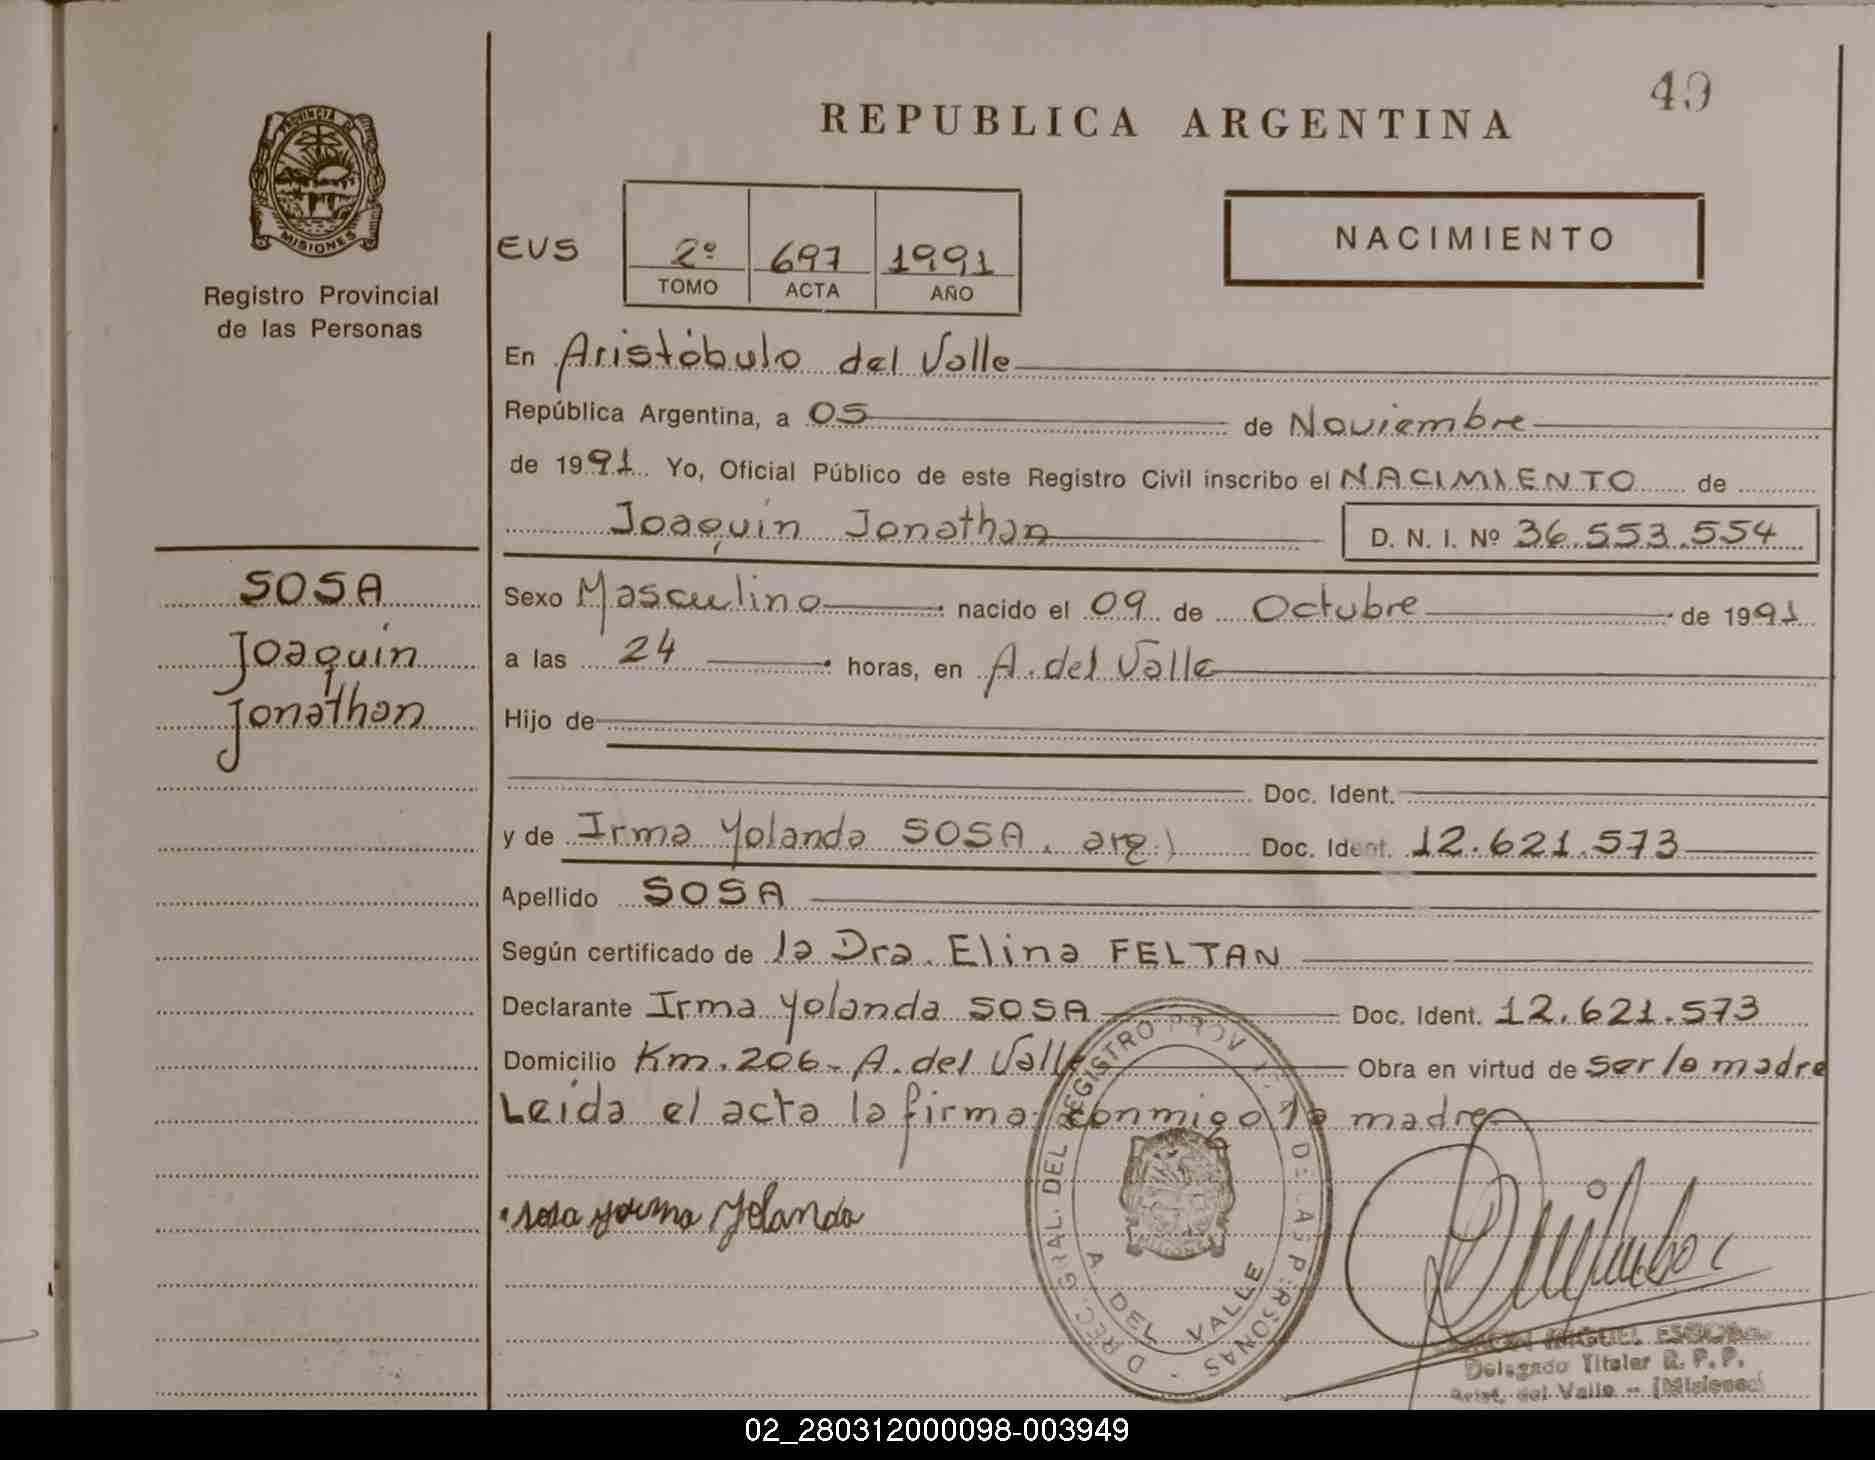 49
REPUBLICA ARGENTINA
PROVINCIA DE
MISIONES
Registro Provincial
de las Personas
EUS
2º 697 1991
TOMO ACTA AÑO
NACIMIENTO
En Aristóbulo del Valle
República Argentina, a 05 de Noviembre
de 1991 Yo, Oficial Público de este Registro Civil inscribo el NACIMIENTO de
Joaquín Jonathan D. N. I. Nº 36.553.554
SOSA
Joaquín
Jonathan
Sexo Masculino nacido el 09 de Octubre de 1991
a las 24 horas, en A. del Valle
Hijo de
Doc. Ident.
y de Irma Yolanda SOSA, arg.) Doc. Ident. 12.621.573
Apellido SOSA
Según certificado de la Dra. Elina FELTAN
Declarante Irma Yolanda SOSA Doc. Ident. 12.621.573
Domicilio Km. 206- A. del Valle Obra en virtud de ser la madre
Leída el acta la firma: conmigo la madre
sosa yrma Yolanda
DIREC. GRAL. DEL REGISTRO PROV. DE LAS PERSONAS
A. DEL VALLE
MIGUEL
Delegado Titular R. P. P.
Arist. del Valle - (Misiones)
02_280312000098-003949